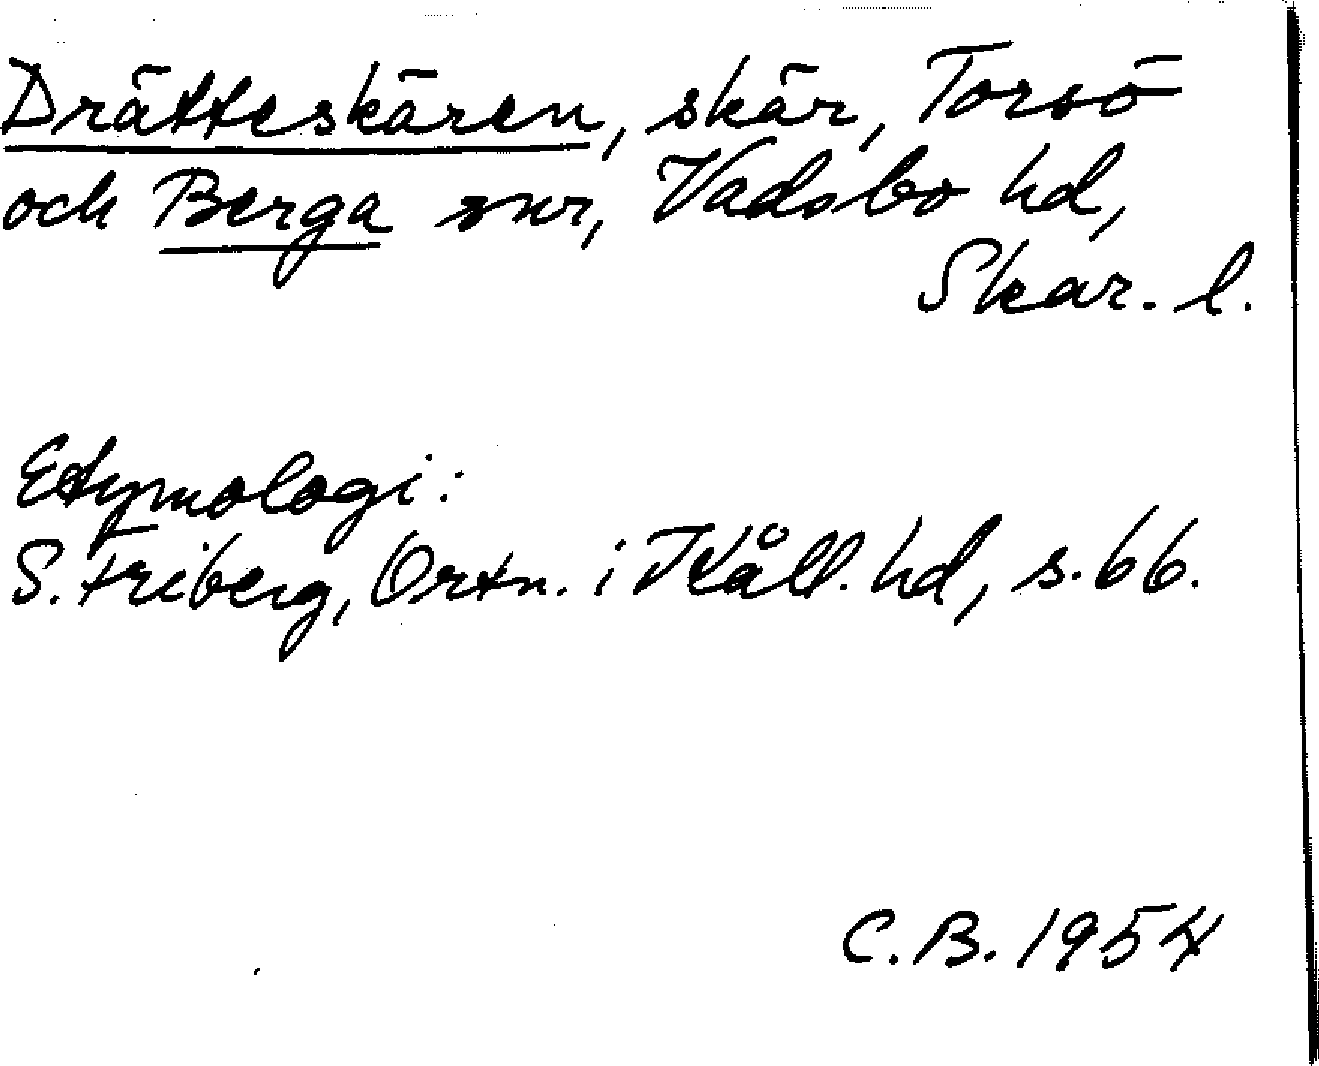 Drätteskären, skär, Torsö
och Berga snr, Vadsbo hd,
Skar. l.
Etymologi:
S. Friberg, Ortn. i Kåll. hd, s. 66.
C. B. 1954